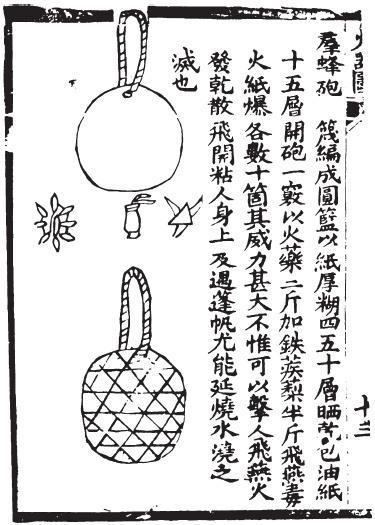 羣蜂砲 篾編成圓籃以紙厚糊四五十層晒包油紙
十五層開砲一竅以火藥二斤加鉄蒺梨半斤飛燕毒
火紙爆各數十箇其威力甚大不惟可以擊人飛燕火
發乾散飛開粘人身上及遇蓬帆尤能延燒水澆之
滅也